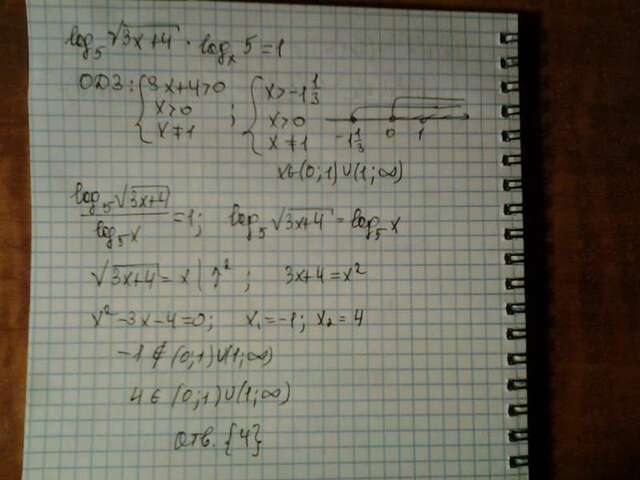 log₅√(3x+4) · logₓ5 = 1
ОДЗ: { 3x+4>0 ; { x>-1 1/3
x>0 x>0
x≠1 x≠1
-1 1/3 0 1
x∈(0;1)∪(1;∞)
log₅√(3x+4) / log₅x = 1; log₅√(3x+4) = log₅x
√(3x+4) = x | ↑² ; 3x+4=x²
x²-3x-4=0; x₁=-1; x₂=4
-1 ∉ (0;1)∪(1;∞)
4 ∈ (0;1)∪(1;∞)
Отв. {4}